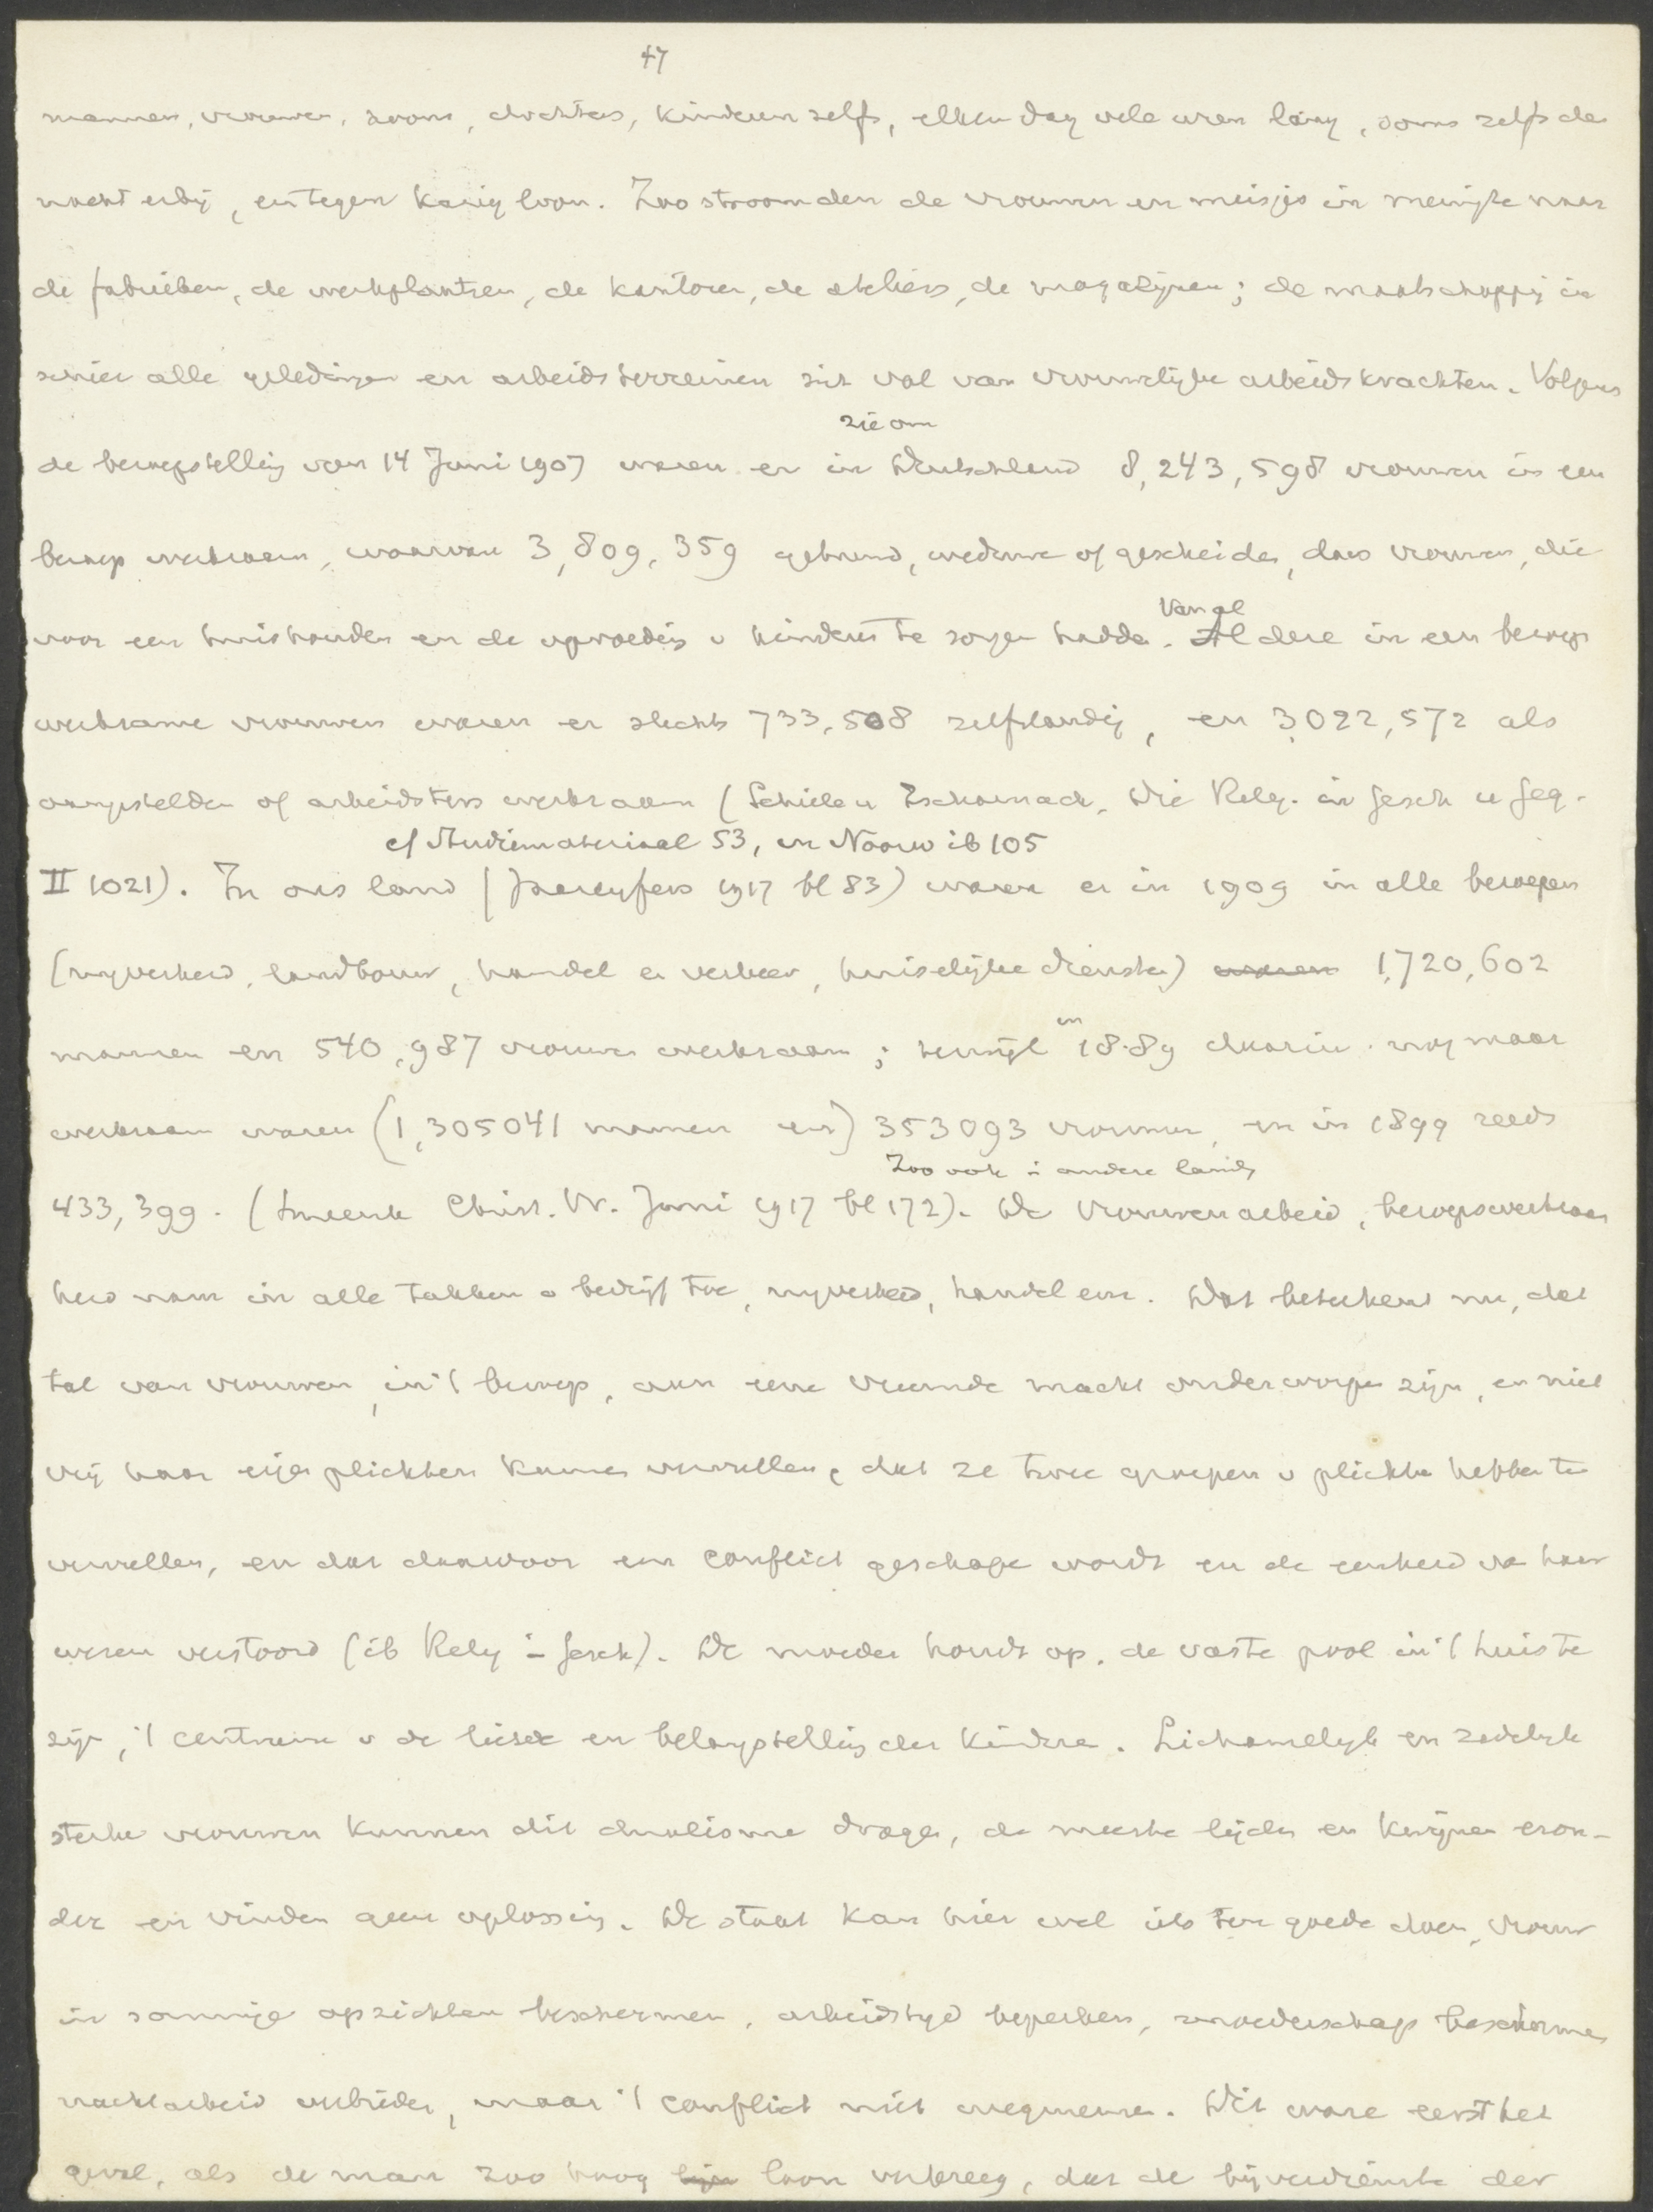 47
mannen, vrouwen, zoons, dochters, kinderen zelfs, elken dag vele uren lang, soms zelfs de
nacht erbij, en tegen karig loon. Zoo stroomden de vrouwen en meisjes in menigte naar
de fabrieken, de werkplaatsen, de kantoren, de ateliers, de magazijnen; de maatschappij in
schier alle geledingen en arbeidsterreinen zit vol van vrouwelijke arbeidskrachten. Volgens
zie om
de beroepstelling van 14 Juni 1907 waren er in Deutschland 8,243,598 vrouwen in een
beroep werkzaam, waarvan 3,809,359 gehuwd, weduwe of gescheiden, dus vrouwen, die
Van al
voor een huishouden en de opvoeding v kinderen te zorgen hadden. Al deze in een beroep
werkzame vrouwen waren er slechts 733,508 zelfstandig, en 3,022,572 als
aangestelden of arbeidsters werkzaam (Schiele u Zscharnack, Die Relig. in Gesch u Geg.
cf Studiemateriaal 53, en Noorw ib 105
II 1021). In ons land (Jaarcyfers 1917 bl 83) waren er in 1909 in alle beroepen
(nyverheid, landbouw, handel en verkeer, huiselijke diensten) waren 1,720,602
in
mannen en 540,987 vrouwen werkzaam; terwijl 1889 daarin nog maar
werkzaam waren (1,305041 mannen en) 353093 vrouwen, en in 1899 reeds
Zoo ook in andere landen
433,399. (Smeenk Christ. Vr. Juni 1917 bl 172). De vrouwenarbeid, beroepswerkzaam
heid nam in alle takken v bedrijf toe, nyverheid, handel enz. Dat beteekent nu, dat
tal van vrouwen, in 't beroep, aan eene vreemde macht onderworpen zijn, en niet
vrij haar eigen plichten kunnen vervullen, dat ze twee groepen v plichten hebben te
vervullen, en dat daardoor een conflict geschapen wordt en de eenheid van haar
wezen verstoord (ib Relig in Gesch). De moeder houdt op, de vaste pool in 't huis te
zijn, 't centrum v de liefde en belangstelling der kinderen. Lichamelijk en zedelijk
sterke vrouwen kunnen dit dualisme dragen, de meeste lijden en kwijnen eron-
der en vinden geen oplossing. De staat kan hier wel iets ten goede doen, vrouw
in sommige opzichten beschermen, arbeidstijd beperken, moederschap beschermen
nachtarbeid verbieden, maar 't conflict niet wegnemen. Dit ware eerst het
geval, als de man zoo hoog loon verkreeg, dat de bijverdienste der